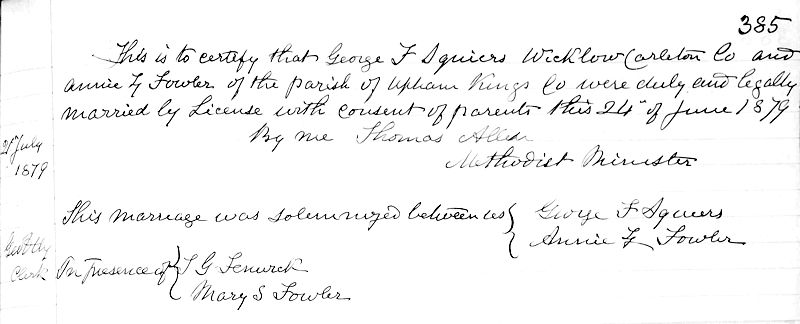 385
This is to certify that George F Squiers Wicklow Carleton Co and
Annie G Fowler of the parish of Upham Kings Co were duly and legally
married by License with consent of parents this 24" of June 1879
By me Thomas Allen
Methodist Minister
July
1879
This marriage was solemnized between us { George F Squiers
Annie G Fowler
Clerk
In presence of { G Fenwick
Mary S Fowler